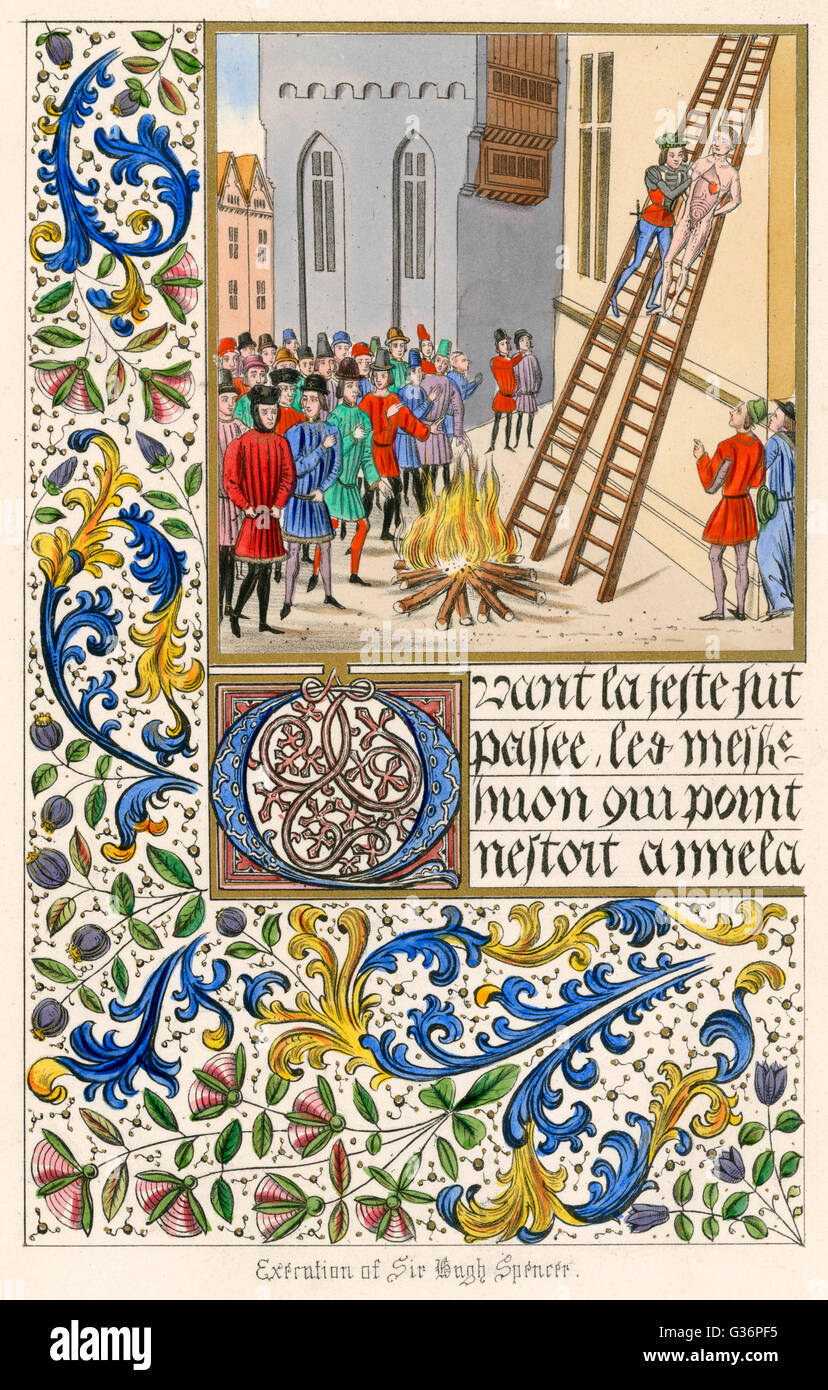 Quant la feste fut
passee, les messire
huon qui point
nestoit amne la
Execution of Sir Hugh Spencer.
alamy
Image ID: G36PF5
www.alamy.com